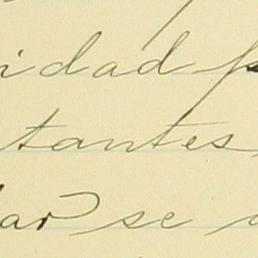 idad p
tantes,
lar se